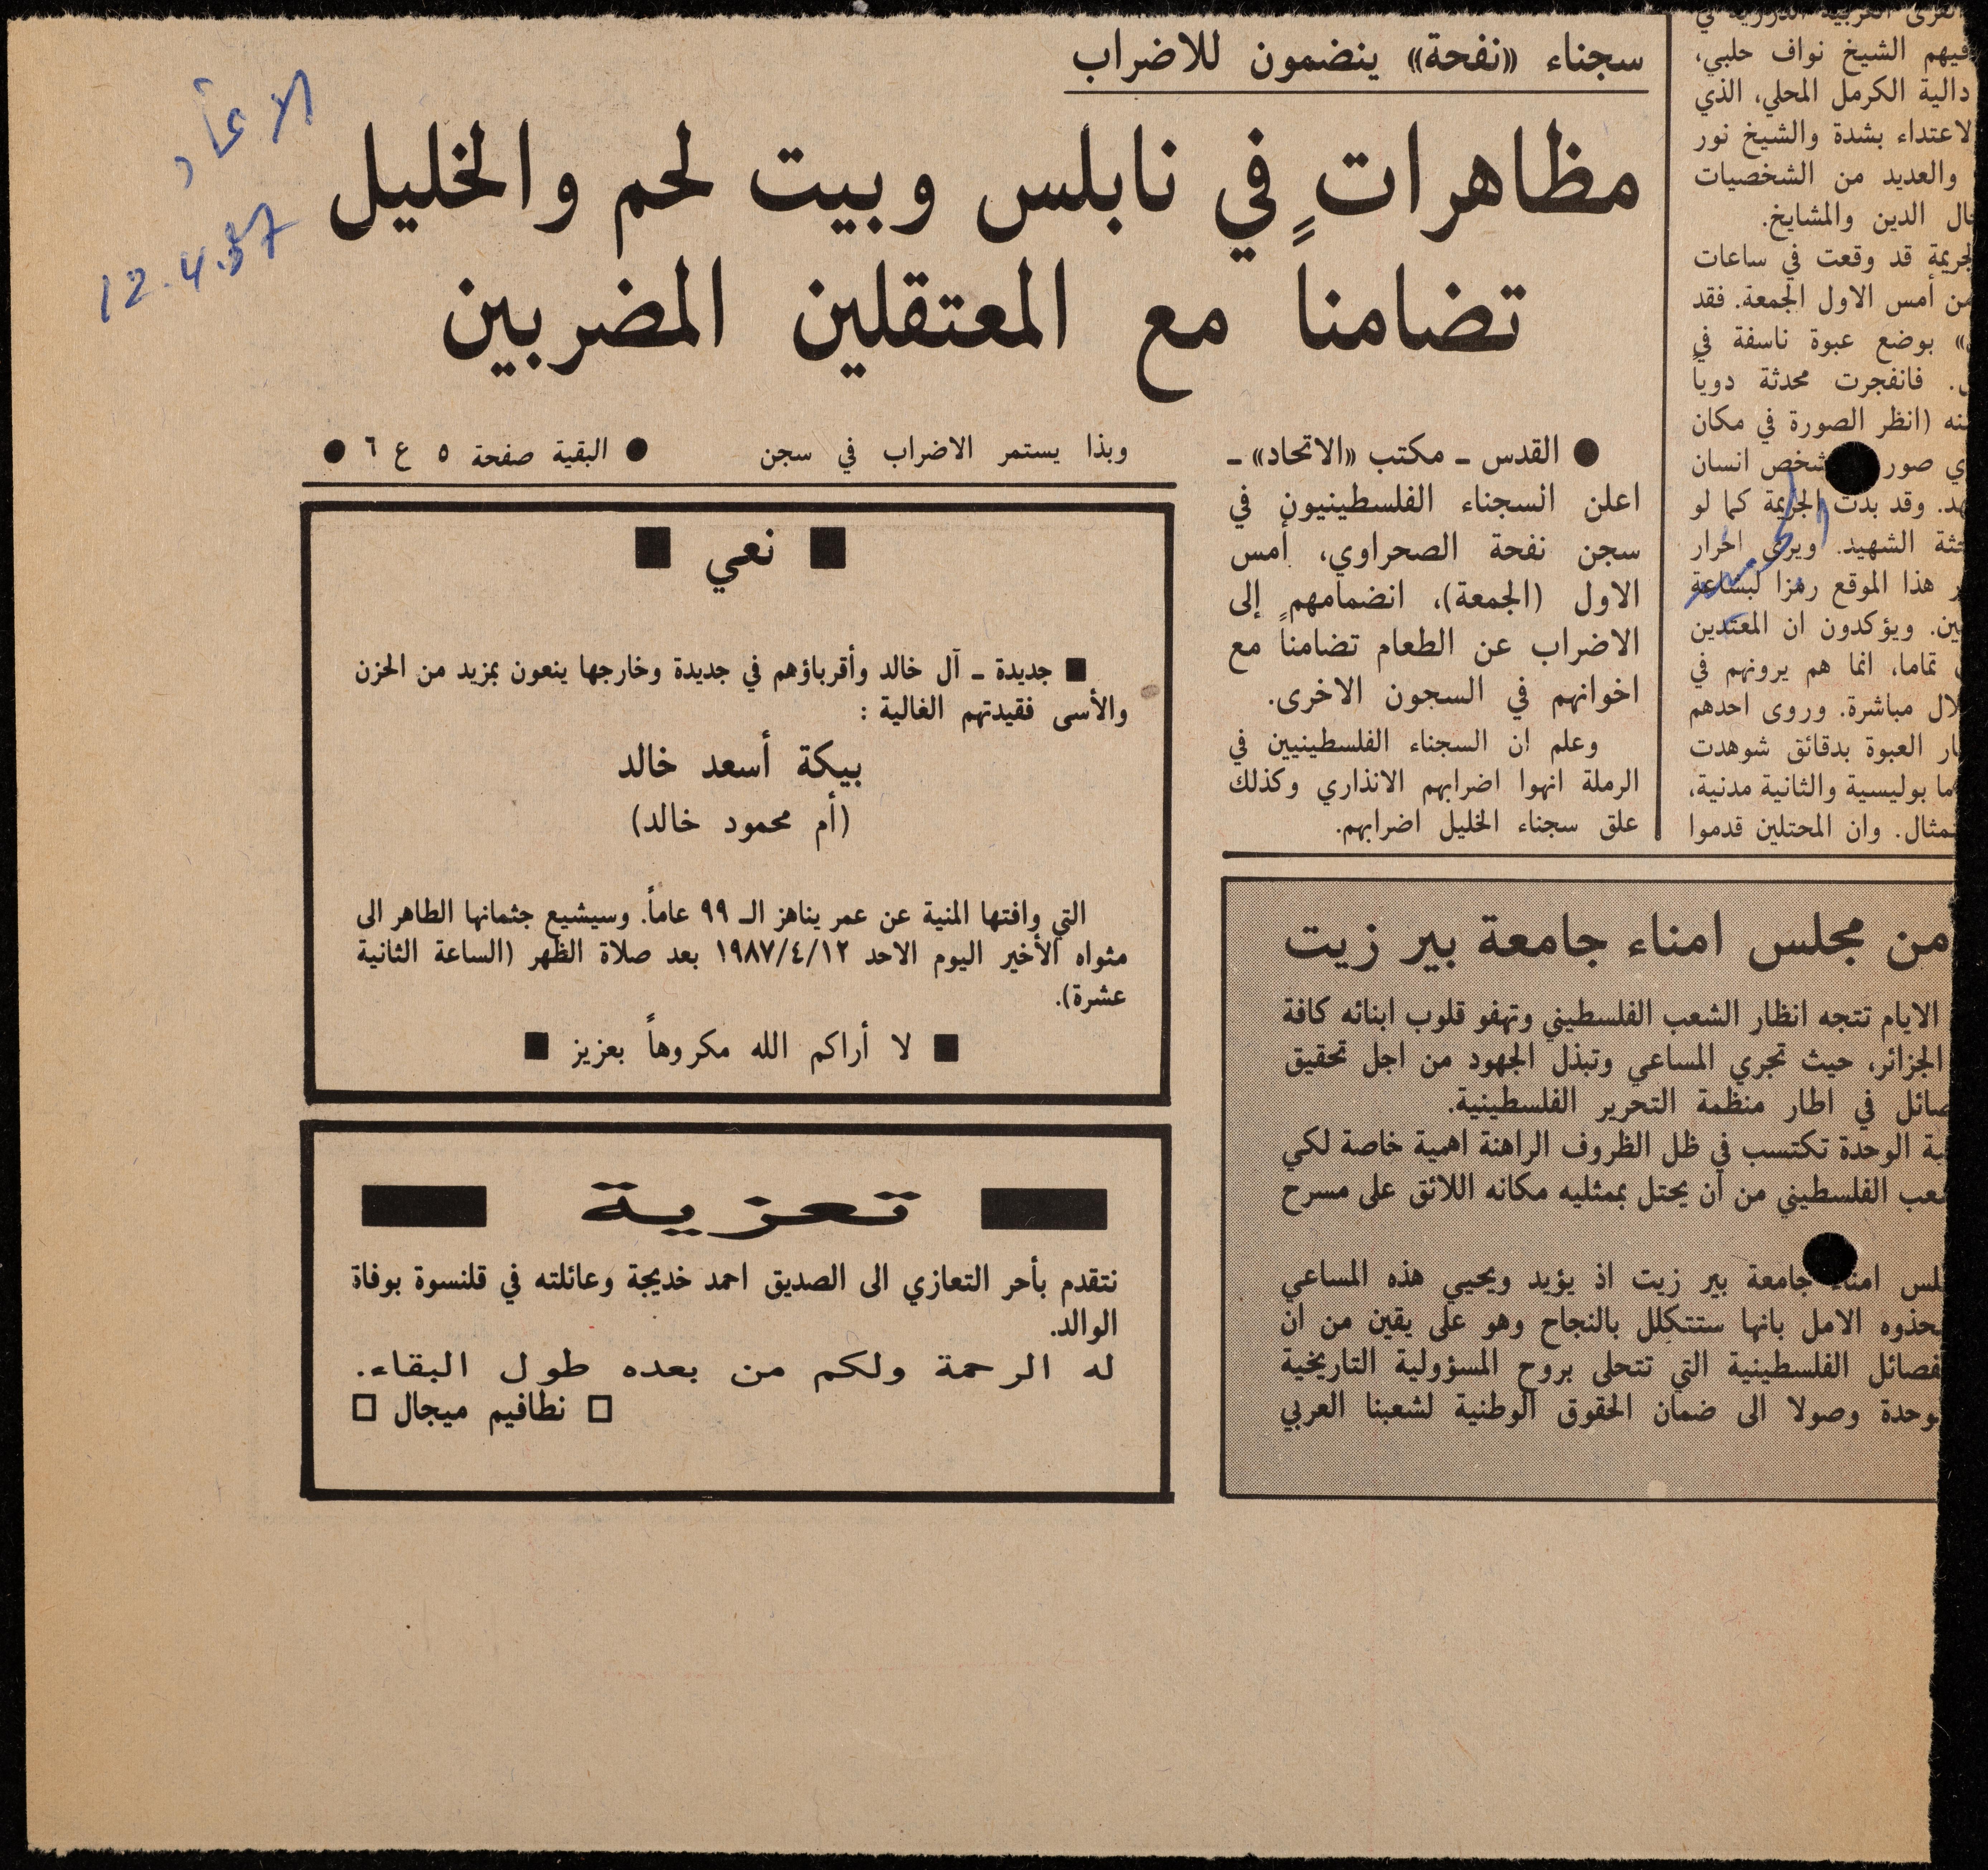 القرى العربية الدرزية في
فيهم الشيخ نواف حلبي،
دالية الكرمل المحلي، الذي
الاعتداء بشدة والشيخ نور
والعديد من الشخصيات
الدين والمشايخ.
الجريمة قد وقعت في ساعات
من أمس الاول الجمعة. فقد
بوضع عبوة ناسفة في
فانفجرت محدثة دوياً
(انظر الصورة في مكان
شخص انسان
وقد بدت الجريمة كما لو
جثة الشهيد. ويرى احرار
هذا الموقع رمزا لبشاعة
ويؤكدون ان المعتدين
تماما، انما هم يرونهم في
مباشرة. وروى احدهم
العبوة بدقائق شوهدت
بوليسية والثانية مدنية،
وان المحتلين قدموا
سجناء «نفحة» ينضمون للاضراب
مظاهرات في نابلس وبيت لحم والخليل
تضامناً مع المعتقلين المضربين
الاتحاد
12.4.87
● القدس ـ مكتب «الاتحاد» ـ
اعلن السجناء الفلسطينيون في
سجن نفحة الصحراوي، أمس
الاول (الجمعة)، انضمامهم إلى
الاضراب عن الطعام تضامناً مع
اخوانهم في السجون الاخرى.
وعلم ان السجناء الفلسطينيين في
الرملة انهوا اضرابهم الانذاري وكذلك
علق سجناء الخليل اضرابهم.
وبذا يستمر الاضراب في سجن
● البقية صفحة ٥ ع ٦ ●
■ نعي ■
■ جديدة ـ آل خالد وأقرباؤهم في جديدة وخارجها ينعون بمزيد من الحزن
والأسى فقيدتهم الغالية :
بيكة أسعد خالد
(أم محمود خالد)
التي وافتها المنية عن عمر يناهز الـ ٩٩ عاماً. وسيشيع جثمانها الطاهر الى
مثواه الأخير اليوم الاحد ١٩٨٧/٤/١٢ بعد صلاة الظهر (الساعة الثانية
عشرة).
■ لا أراكم الله مكروهاً بعزيز ■
تعزية
نتقدم بأحر التعازي الى الصديق احمد خديجة وعائلته في قلنسوة بوفاة
الوالد.
له الرحمة ولكم من بعده طول البقاء.
□ نطافيم ميجال □
من مجلس امناء جامعة بير زيت
الايام تتجه انظار الشعب الفلسطيني وتهفو قلوب ابنائه كافة
الجزائر، حيث تجري المساعي وتبذل الجهود من اجل تحقيق
في اطار منظمة التحرير الفلسطينية.
الوحدة تكتسب في ظل الظروف الراهنة اهمية خاصة لكي
الفلسطيني من أن يحتل بممثليه مكانه اللائق على مسرح
امناء جامعة بير زيت اذ يؤيد ويحيي هذه المساعي
الامل بانها ستتكلل بالنجاح وهو على يقين من ان
الفلسطينية التي تتحلى بروح المسؤولية التاريخية
وصولا الى ضمان الحقوق الوطنية لشعبنا العربي